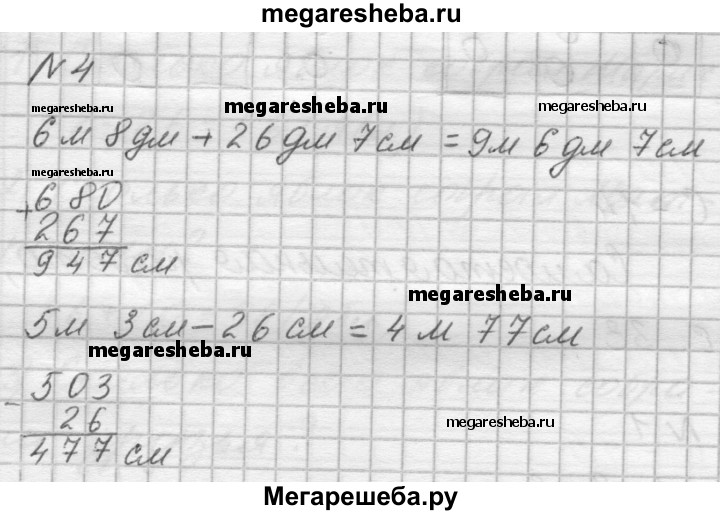 megaresheba.ru
N 4
megaresheba.ru megaresheba.ru megaresheba.ru
6 м 8 дм + 26 дм 7 см = 9 м 6 дм 7 см
megaresheba.ru
+ 680
267
947 см
megaresheba.ru
5 м 3 см - 26 см = 4 м 77 см
megaresheba.ru
- 503
26
megaresheba.ru
477 см
Мегарешеба.ру